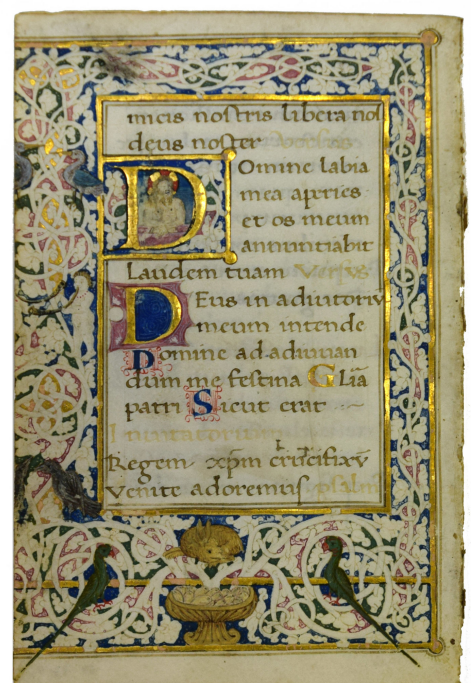 imicis nostris libera nos
deus noster
Domine labia
mea apries
et os meum
annuntiabit
Laudem tuam Versus
DEus in adiutoriũ
meum intende
Domine ad adiuuan
dum me festina Gl̃ia
patri Sicut erat
Inuitatorium
Regem xp̃m crucifixũ
Venite adoremus psalm